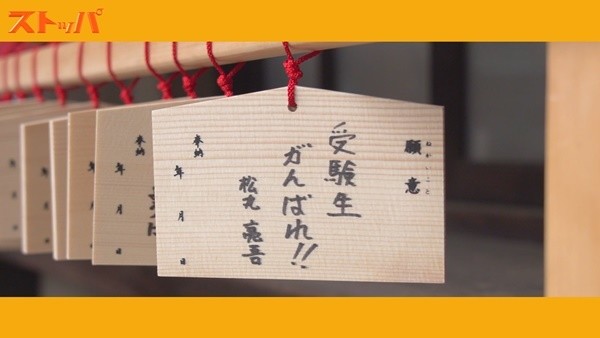 願意
ねがいごと
受験生
がんばれ!!
松丸 亮吾
奉納
年 月 日
奉納
年 月 日